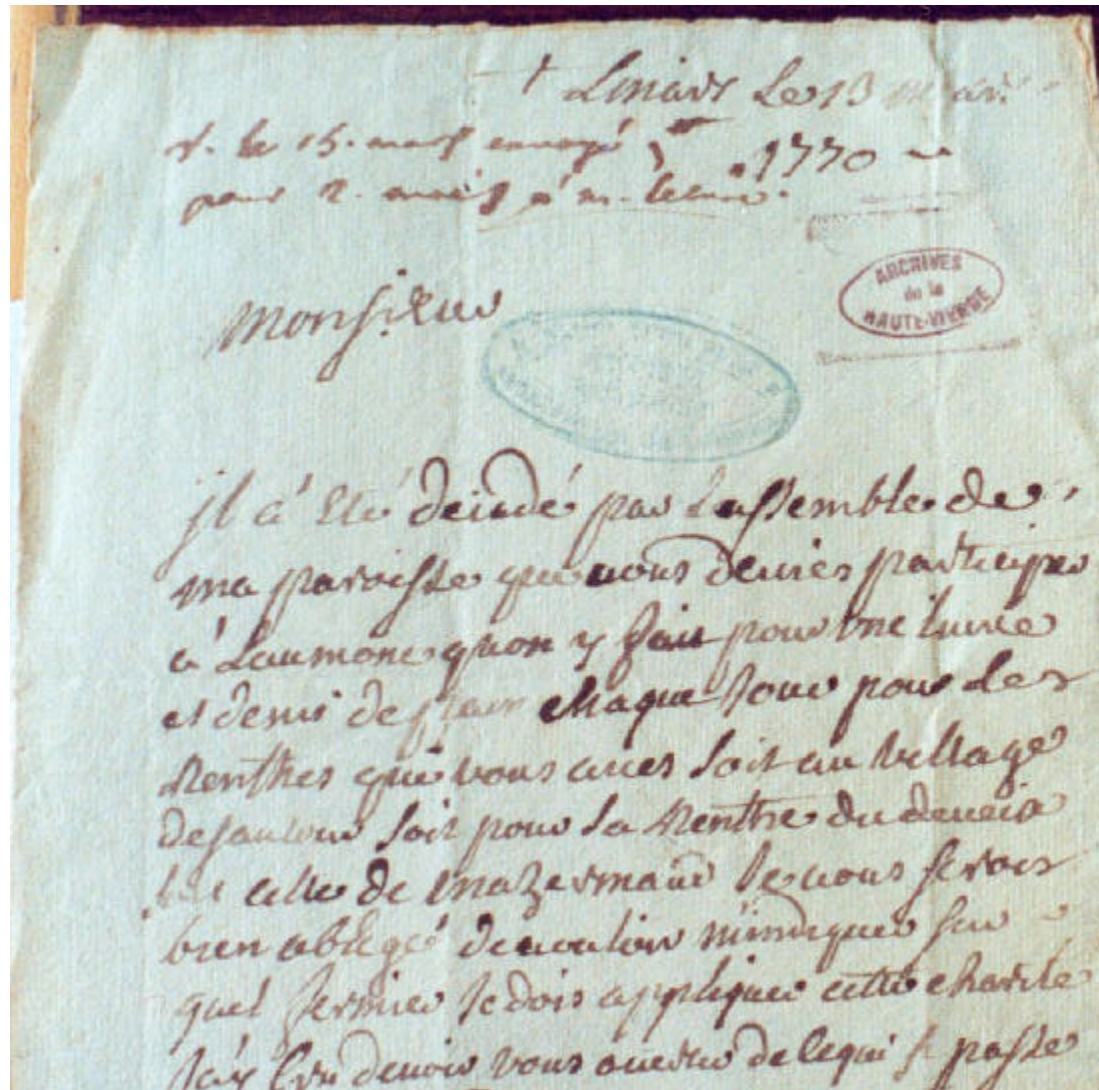 + Linars Le 13 mars
r. le 15. mars envoyé
1770
pour 2. mois à m.
Monsieur
ARCHIVES
de la
HAUTE-VIENNE
jl a' Eté decidé par Lassemblee de
ma paroisse que vous devies participer
a' Laumone quon y fait pour une livre
et demi de pain chaque Jour pour Les
Renthes que vous aves soit au village
de soit pour La Renthe du
celle de Mazermaud Je vous serois
bien oblegé de vouloir m'indiquer sur
quel fermier Je dois appliquer cette charite
Jay Cru devoir vous de ce qui se passe